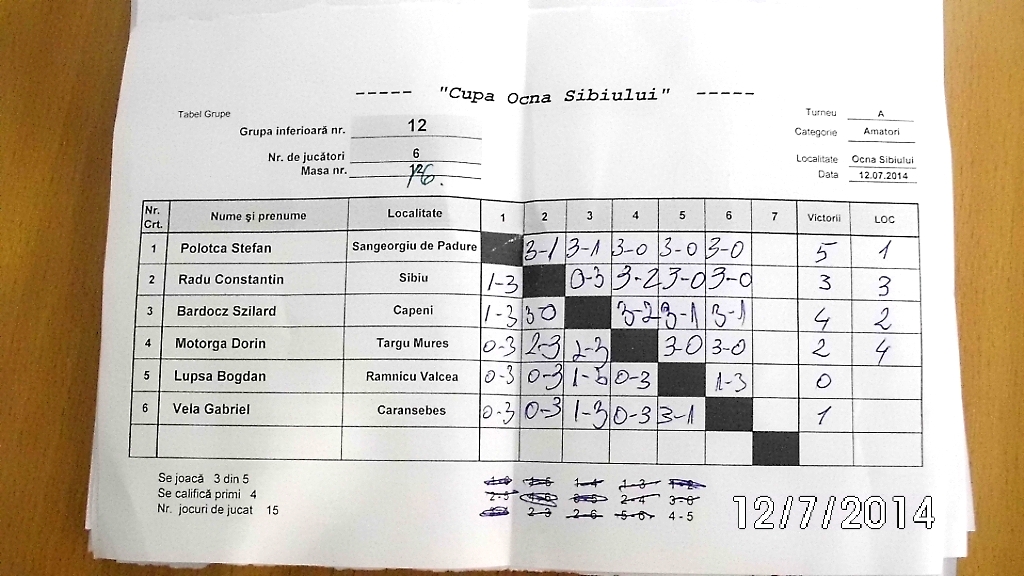 ----- "Cupa Ocna Sibiului" -----
Tabel Grupe
Turneu A
Grupa inferioară nr. 12
Categorie Amatori
Nr. de jucători 6
Localitate Ocna Sibiului
Masa nr. 16.
Data 12.07.2014
Nr. Crt. Nume și prenume Localitate 1 2 3 4 5 6 7 Victorii LOC
1 Polotca Stefan Sangeorgiu de Padure 3-1 3-1 3-0 3-0 3-0 5 1
2 Radu Constantin Sibiu 1-3 0-3 3-2 3-0 3-0 3 3
3 Bardocz Szilard Capeni 1-3 3-0 3-2 3-1 3-1 4 2
4 Motorga Dorin Targu Mures 0-3 2-3 2-3 3-0 3-0 2 4
5 Lupsa Bogdan Ramnicu Valcea 0-3 0-3 1-3 0-3 1-3 0
6 Vela Gabriel Caransebes 0-3 0-3 1-3 0-3 3-1 1
Se joacă 3 din 5
Se califică primi 4
Nr. jocuri de jucat 15
1-4 1-3 1-2
2-5 2-4 3-6
2-3 2-6 5-6 4-5
12/7/2014